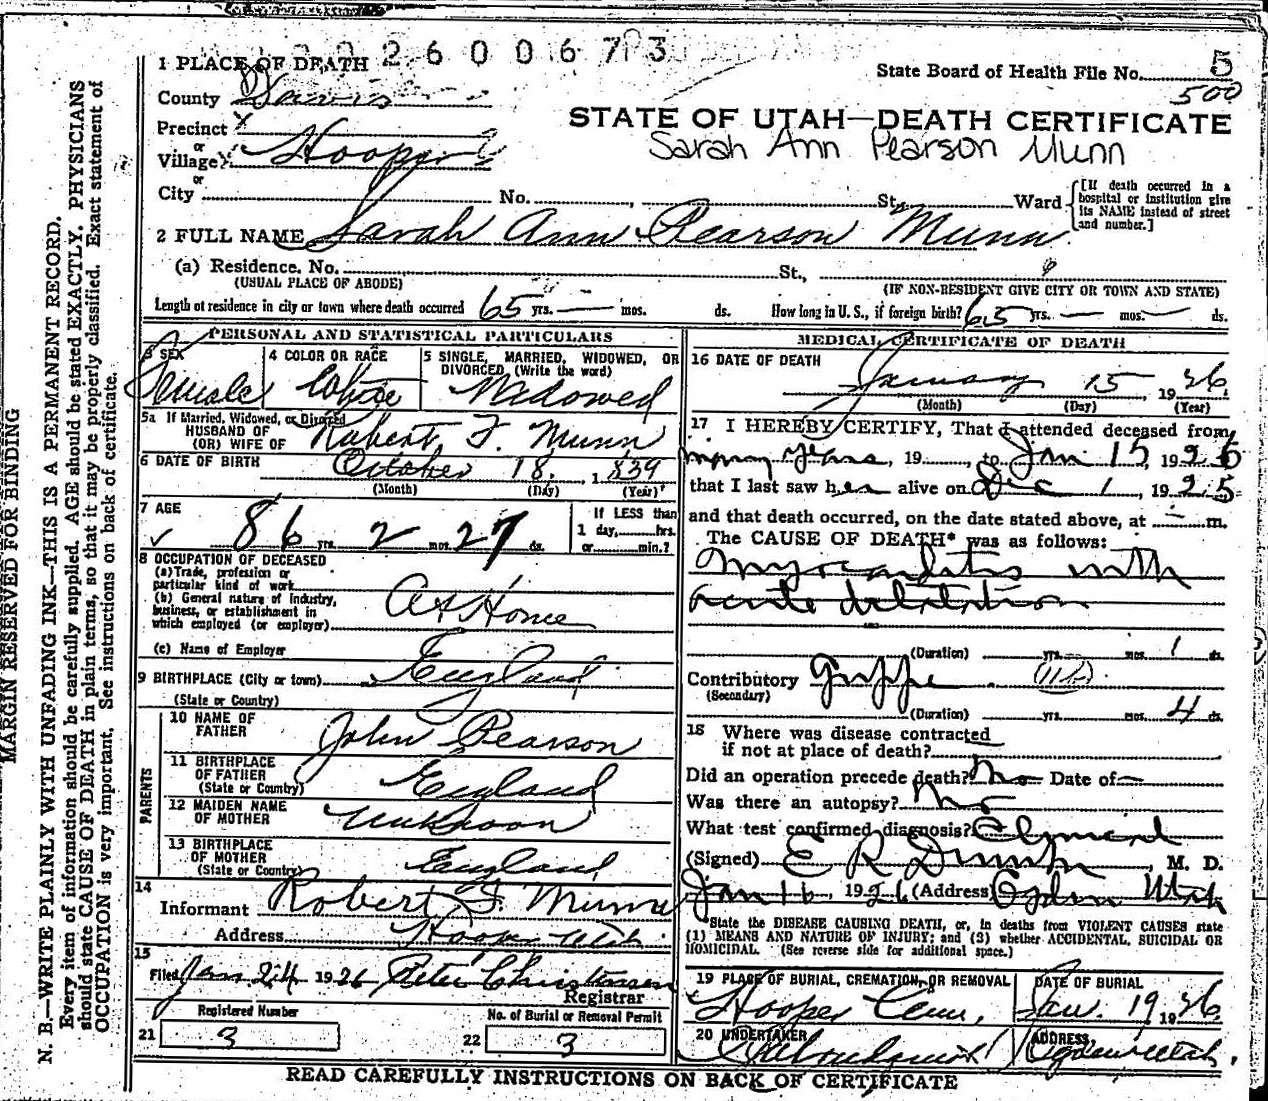 2600673
1 PLACE OF DEATH
State Board of Health File No. 5
500
County Davis
STATE OF UTAH—DEATH CERTIFICATE
Sarah Ann Pearson Munn
Precinct X
or
Village X Hooper
or
City No. , St, Ward
[If death occurred in a
hospital or institution give
its NAME instead of street
and number.]
2 FULL NAME Sarah Ann Pearson Munn
(a) Residence. No. St.,
(USUAL PLACE OF ABODE) (IF NON-RESIDENT GIVE CITY OR TOWN AND STATE)
Length of residence in city or town where death occurred 65 yrs. — mos. ds. How long in U. S., if foreign birth? 65 yrs. — mos. — ds.
PERSONAL AND STATISTICAL PARTICULARS
3 SEX Female
4 COLOR OR RACE White
5 SINGLE, MARRIED, WIDOWED, OR
DIVORCED (Write the word)
Widowed
5a If Married, Widowed, or Divorced
HUSBAND OF
(OR) WIFE OF Robert F. Munn
6 DATE OF BIRTH October 18, 1839
(Month) (Day) (Year)
7 AGE
✓ 86 yrs. 2 mos. 27 ds.
If LESS than
1 day, hrs.
or min.?
8 OCCUPATION OF DECEASED
(a) Trade, profession or
particular kind of work
(b) General nature of industry,
business, or establishment in
which employed (or employer) At Home
(c) Name of Employer
9 BIRTHPLACE (City or town) England
(State or Country)
PARENTS
10 NAME OF
FATHER John Pearson
11 BIRTHPLACE
OF FATHER
(State or Country) England
12 MAIDEN NAME
OF MOTHER Unknoon
13 BIRTHPLACE
OF MOTHER
(State or Country) England
14
Informant Robert F. Munn
Address Hooper Utah
15
Filed Jan 24 1926 Peter Christensen
Registrar
Registered Number
21 3
No. of Burial or Removal Permit
22 3
MEDICAL CERTIFICATE OF DEATH
16 DATE OF DEATH
January 15, 1926
(Month) (Day) (Year)
17 I HEREBY CERTIFY, That I attended deceased from
many years, 19 , to Jan 15 1926
that I last saw her alive on Dec 1, 1925
and that death occurred, on the date stated above, at — m.
The CAUSE OF DEATH* was as follows:
Myocarditis with
acute dilatation
(Duration) yrs. mos. 1 ds.
Contributory Grippe 11b
(Secondary)
(Duration) yrs. mos. 4 ds.
18 Where was disease contracted
if not at place of death?
Did an operation precede death? No Date of —
Was there an autopsy? No
What test confirmed diagnosis? Clinical
(Signed) E R Dumke M. D.
Jan 16, 1926 (Address) Ogden Utah
*State the DISEASE CAUSING DEATH, or, in deaths from VIOLENT CAUSES state
(1) MEANS AND NATURE OF INJURY; and (2) whether ACCIDENTAL, SUICIDAL OR
HOMICIDAL. (See reverse side for additional space.)
19 PLACE OF BURIAL, CREMATION, OR REMOVAL
Hooper Cem,
DATE OF BURIAL
Jan. 19 1926
20 UNDERTAKER
ADDRESS
Ogden Utah.
READ CAREFULLY INSTRUCTIONS ON BACK OF CERTIFICATE
MARGIN RESERVED FOR BINDING
N. B.—WRITE PLAINLY WITH UNFADING INK—THIS IS A PERMANENT RECORD.
Every item of information should be carefully supplied. AGE should be stated EXACTLY. PHYSICIANS
should state CAUSE OF DEATH in plain terms, so that it may be properly classified. Exact statement of
OCCUPATION is very important. See instructions on back of certificate.